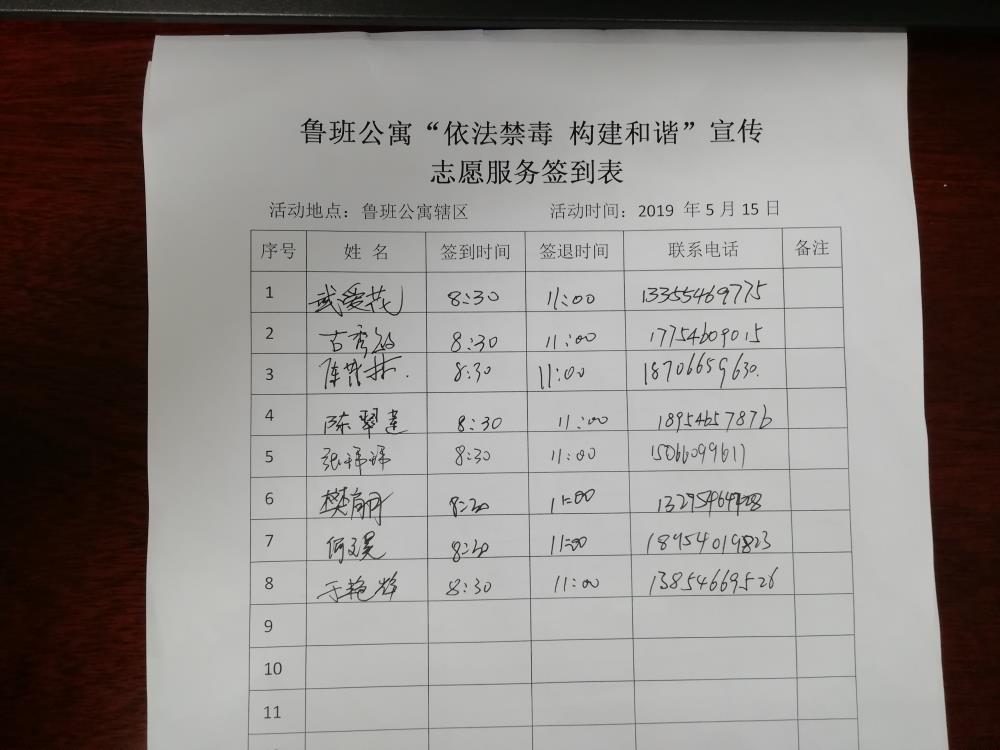 鲁班公寓“依法禁毒 构建和谐”宣传
志愿服务签到表
活动地点：鲁班公寓辖区 活动时间：2019 年 5 月 15 日
序号 姓 名 签到时间 签退时间 联系电话 备注
1 武爱花 8:30 11:00 13355469775
2 古秀 8:30 11:00 17754609015
3 陈 林 8:30 11:00 18706659630.
4 陈翠莲 8:30 11:00 18954657876
5 张玮玮 8:30 11:00 15066099617
6 樊 8:30 11:00
7 何文昊 8:30 11:00 18954019823
8 于艳 8:30 11:00 13854669526
9
10
11